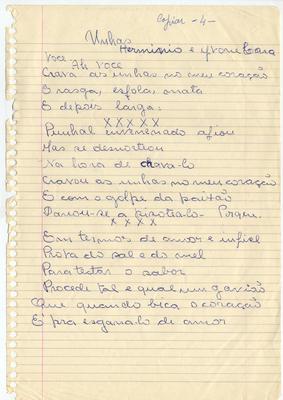 Copiar - 4 -
Unhas
Herminio e Yvone Lara
Voce
Ah Voce
Crava as unhas no meu coração
E rasga, esfola, mata
E depois larga:
X X X X X
Punhal envenenado afiou
Mas se desnorteou
Na hora de crava-lo
Cravou as unhas no meu coração
E com o golpe da paixão
X X X X
Em termos de amor e infiel
Prova do sal e do mel
Para testar o sabor
Procede tal e qual um gavião
Que quando bica o coração
É pra esgana-lo de amor